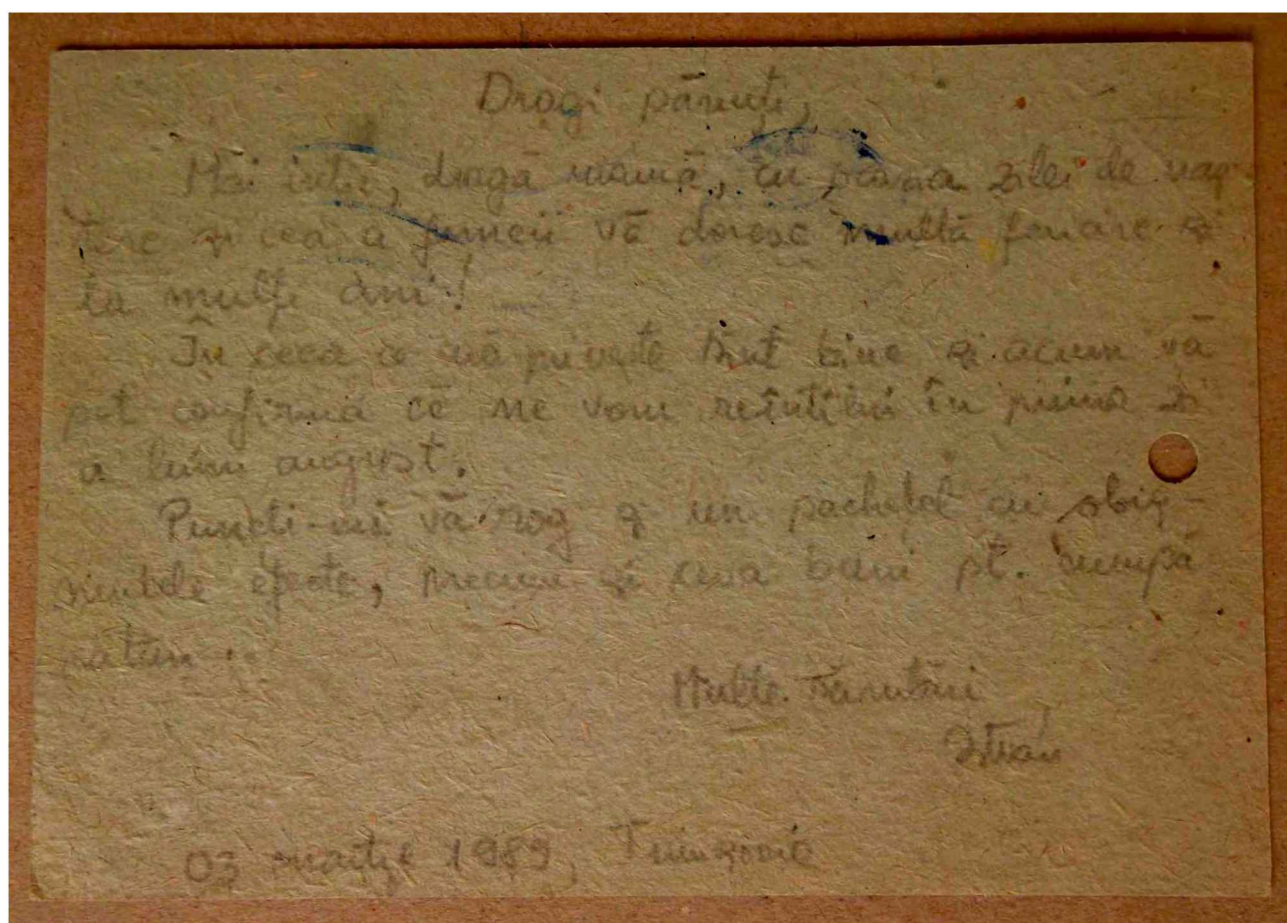 Dragi părinți,
Mai întîi, dragă mamă, cu ocazia zilei de naș-
tere și cea a femeii vă doresc multă fericire și
la mulți ani!
În ceea ce mă privește sînt bine și acum vă
pot confirma că ne vom reîntîlni în prima zi
a lunii august.
Puneți-mi vă rog și un pachețel cu obiș-
nuitele efecte, precum și ceva bani pt. cumpă
rături.
Multe sărutări
István
03 martie 1989, Timișoara